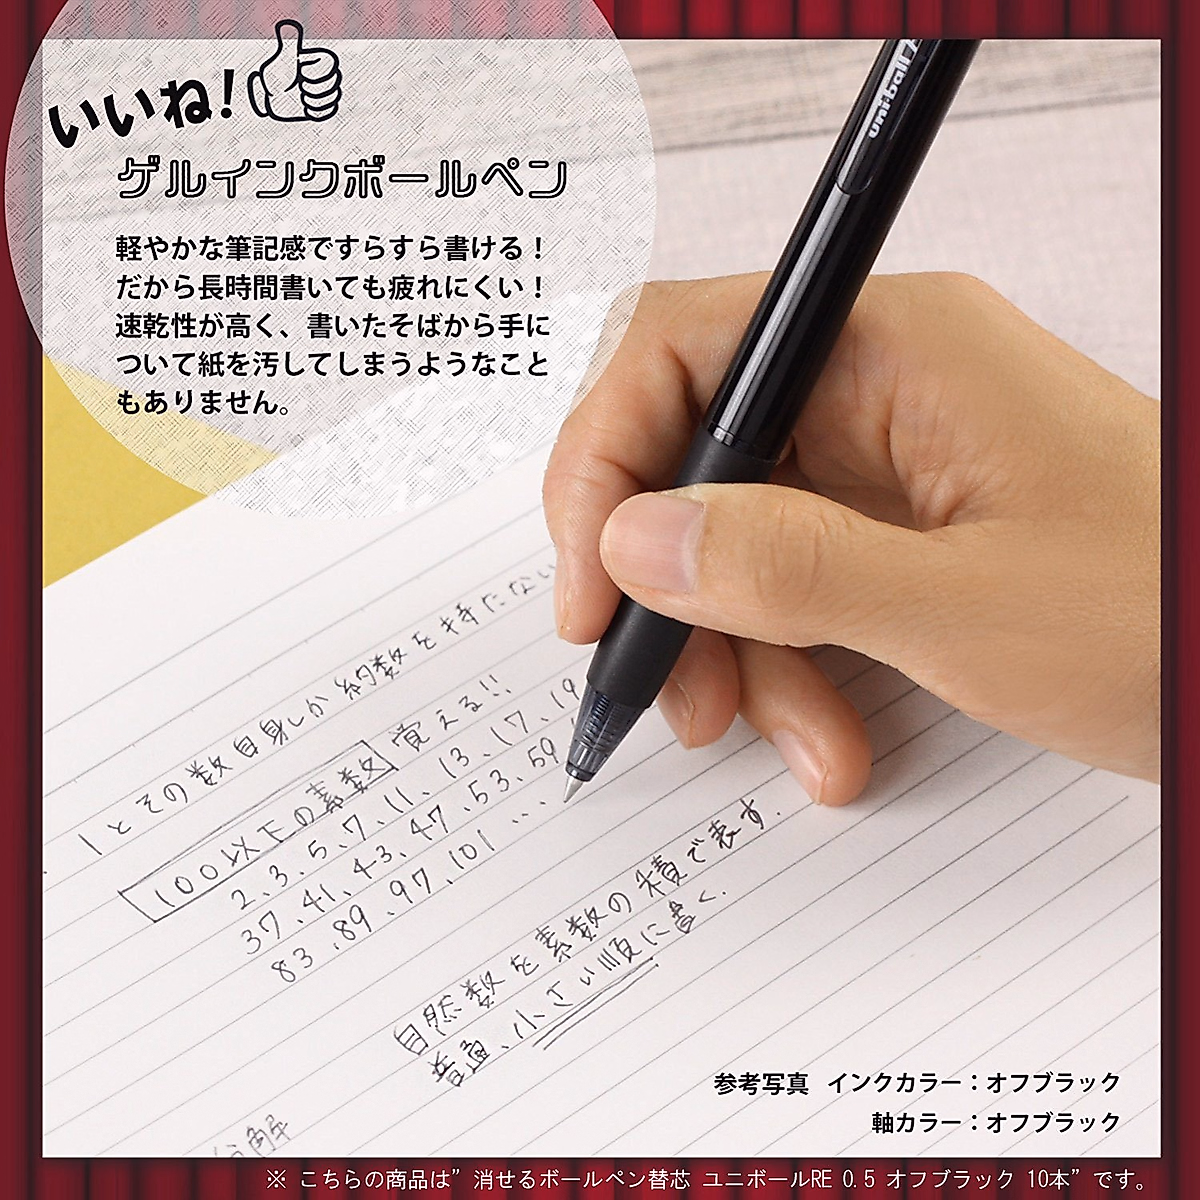 いいね!
ゲルインクボールペン
軽やかな筆記感ですらすら書ける！
だから長時間書いても疲れにくい！
速乾性が高く、書いたそばから手に
ついて紙を汚してしまうようなこと
もありません。
uni-ball
1とその数自身しか約数を持たない
100以下の素数 覚える!!
2、3、5、7、11、13、17、19
37、41、43、47、53、59
83、89、97、101 …
自然数を素数の積で表す.
普通、小さい順に書く.
分解
参考写真 インクカラー：オフブラック
軸カラー：オフブラック
※ こちらの商品は”消せるボールペン替芯 ユニボールRE 0.5 オフブラック 10本”です。